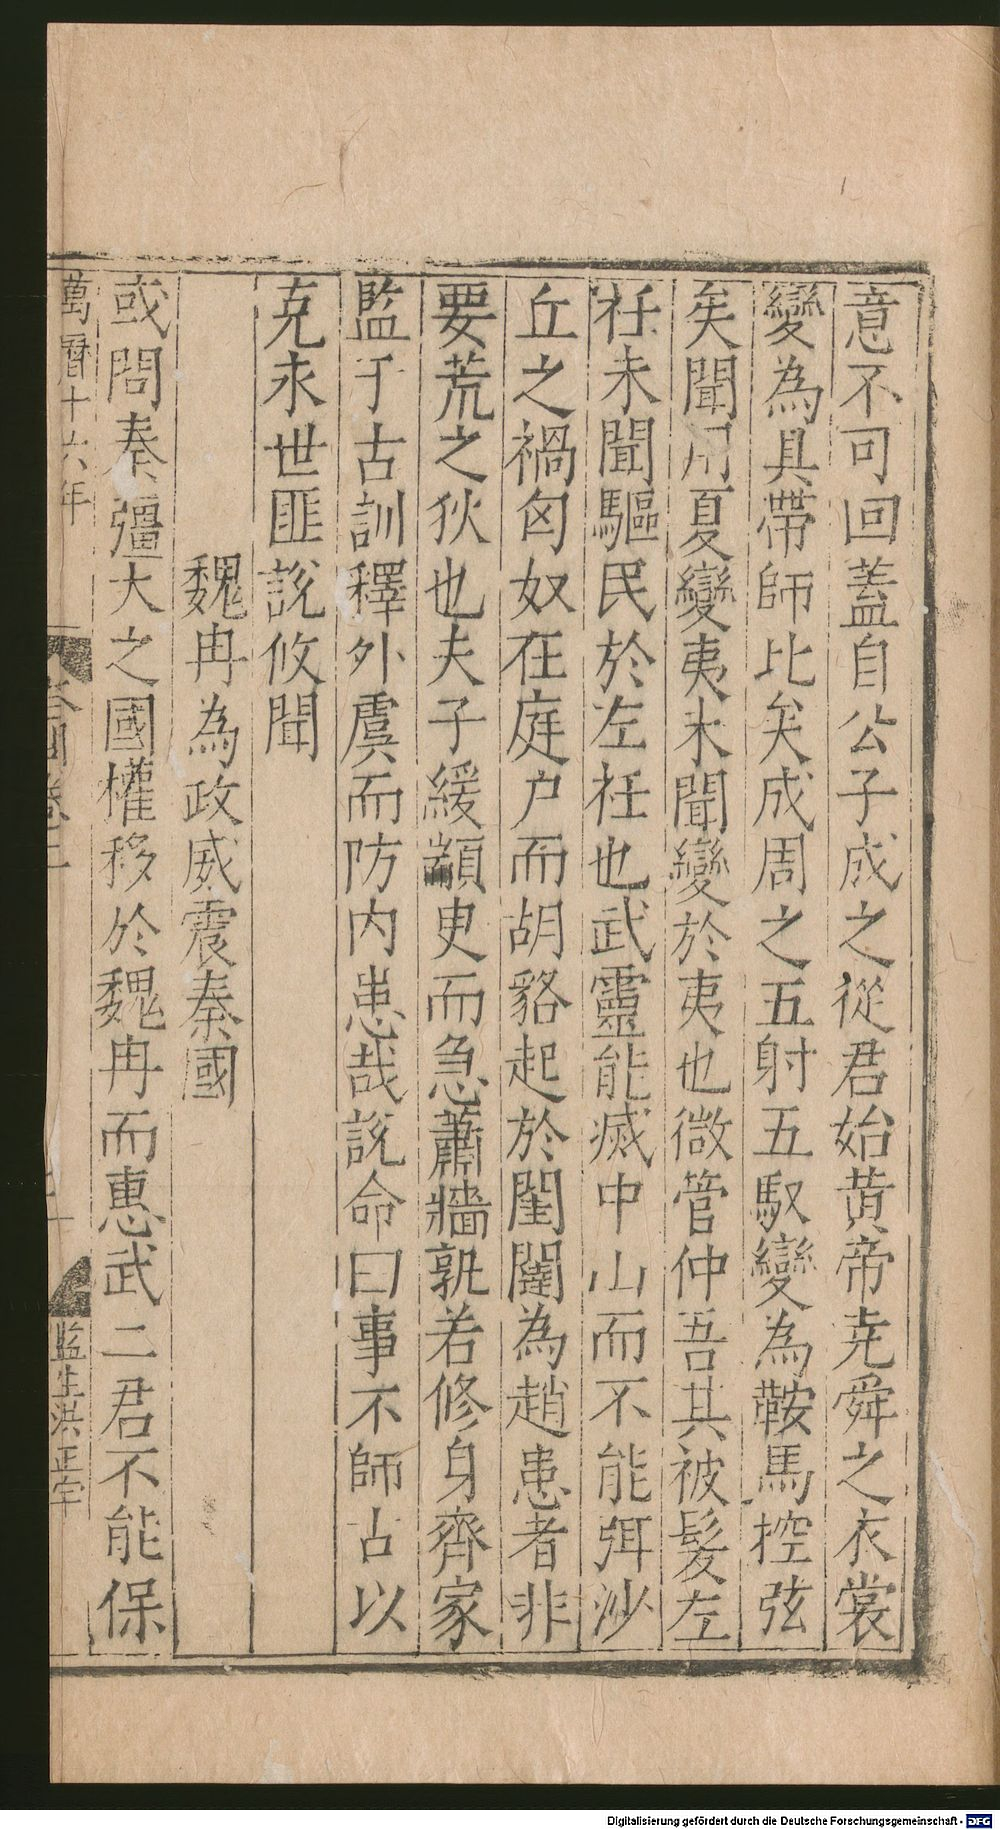 意不可回蓋自公子成之從君始黄帝尭舜之衣裳
變為具帶師比矣成周之五射五馭變為鞍馬控弦
矣聞用夏變夷未聞變於夷也微管仲吾其被髮左
衽未聞驅民於左衽也武靈能滅中山而不能弭沙
丘之禍匈奴在庭户而胡貉起於閨闥為趙患者非
要荒之狄也夫子緩顓臾而急蕭牆孰若修身齊家
監于古訓釋外虞而防内患哉說命曰事不師古以
克永世匪說攸聞
魏冉為政威震秦國
或問秦彊大之國權移於魏冉而惠武二君不能保
萬曆十六年
監生洪正宇
Digitalisierung gefördert durch die Deutsche Forschungsgemeinschaft - DFG